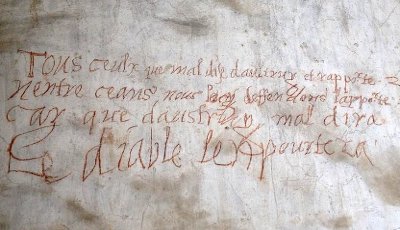 Tous ceulx que mal dise daultruy et rapporte
Nentre ceans nous luy deffendons la porte
Car que daustruy mal dira
Le diable lexportera